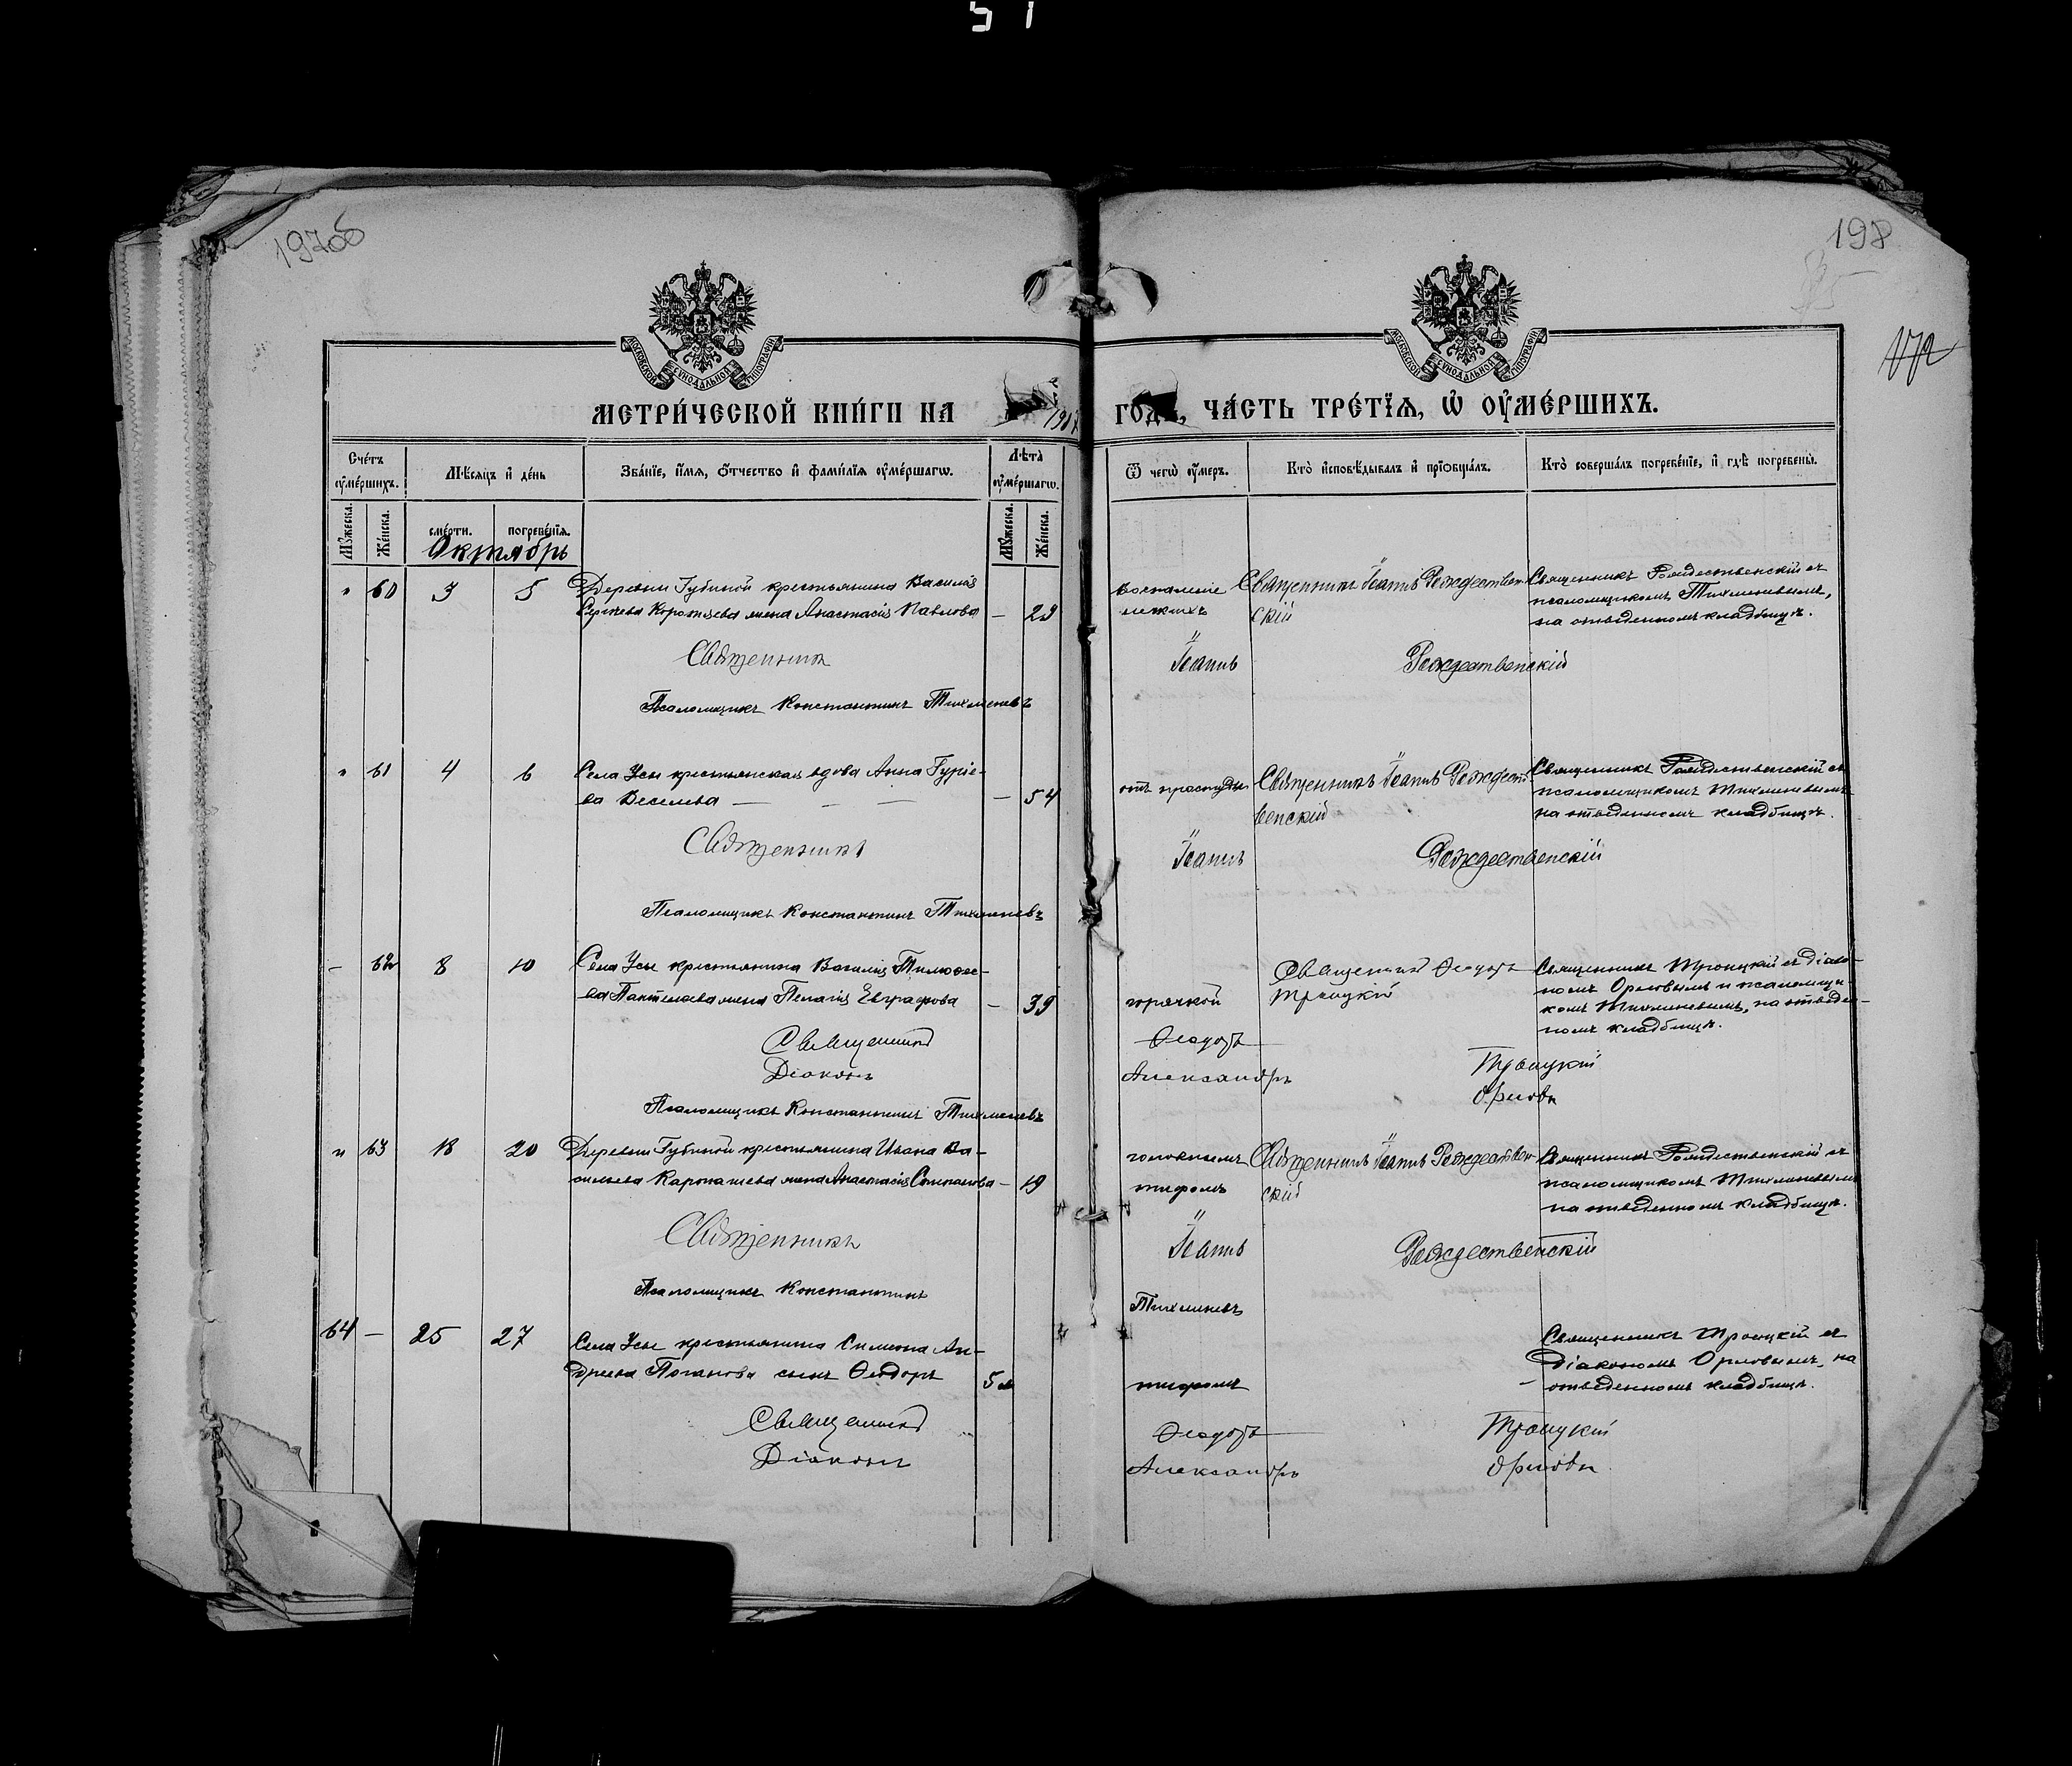 51
197об
198
172
МОСКОВСКОЙ СѴНОДАЛЬНОЙ ТИПОГРАФІИ
МОСКОВСКОЙ СѴНОДАЛЬНОЙ ТИПОГРАФІИ
МЕТРИ́ЧЕСКОЙ КНИ́ГИ НА ГОДЪ, ЧА́СТЬ ТРЕ́ТЇѦ, Ѡ҆ ОУ҆МЕ́РШИХЪ.
Сче́тъ оу҆ме́ршихъ.
Мѣ́сѧцъ и҆ де́нь
Зва́нїе, и҆́мѧ, ѻ҆́тчество и҆ фами́лїѧ оу҆ме́ршагѡ.
Лѣ́та оу҆ме́ршагѡ.
Ѿ чегѡ̀ оу҆́меръ.
Кто̀ и҆сповѣ́дывалъ и҆ прїѡбща́лъ.
Кто̀ соверша́лъ погребе́нїе, и҆ гдѣ̀ погребены̀.
Мꙋ́жеска.
Же́нска.
сме́рти.
погребе́нїѧ.
Мꙋ́жеска.
Же́нска.
Октябрь
" 60 3 5 Деревни Губиной крестьянина Василія
Сергѣева жена Анастасія Павлова –
воспаленіе легкихъ
Священникъ Іоаннъ Рождествен-
скій
Священникъ Рождественскій съ
псаломщикомъ Тихменевымъ,
на отведенномъ кладбищѣ.
Священникъ Іоаннъ Рождественскій
Псаломщикъ Константинъ Тихменевъ
" 61 4 6 Села Усы крестьянская вдова Анна Гуріе-
ва – – – – 54
отъ простуды
Священникъ Іоаннъ Рождест-
венскій
Священникъ Рождественскій съ
псаломщикомъ Тихменевымъ
на отведенномъ кладбищѣ.
Священникъ Іоаннъ Рождественскій
Псаломщикъ Константинъ Тихменевъ
– 62 8 10 Села Усы крестьянина Василія Тимофее-
ва жена Пелагія Евграфова – 39
горячкой
Священникъ Ѳеодоръ
Троицкій
Священникъ Троицкій съ діако-
номъ Орловымъ и псаломщи-
комъ Тихменевымъ, на отведен-
номъ кладбищѣ.
Священникъ Ѳеодоръ Троицкій
Діаконъ Александръ Орловъ
Псаломщикъ Константинъ Тихменевъ
" 63 18 20 Деревни Губиной крестьянина Ивана Ва-
сильева жена Анастасія Степанова – 19
головнымъ
тифомъ
Священникъ Іоаннъ Рождествен-
скій
Священникъ Рождественскій съ
псаломщикомъ Тихменевымъ
на отведенномъ кладбищѣ.
Священникъ Іоаннъ Рождественскій
Псаломщикъ Константинъ Тихменевъ
64 – 25 27 Села Усы крестьянина Симеона Ан-
дреева сынъ Ѳеодоръ 5
тифомъ
Священникъ Троицкій съ
діакономъ Орловымъ, на
отведенномъ кладбищѣ.
Священникъ Ѳеодоръ Троицкій
Діаконъ Александръ Орловъ